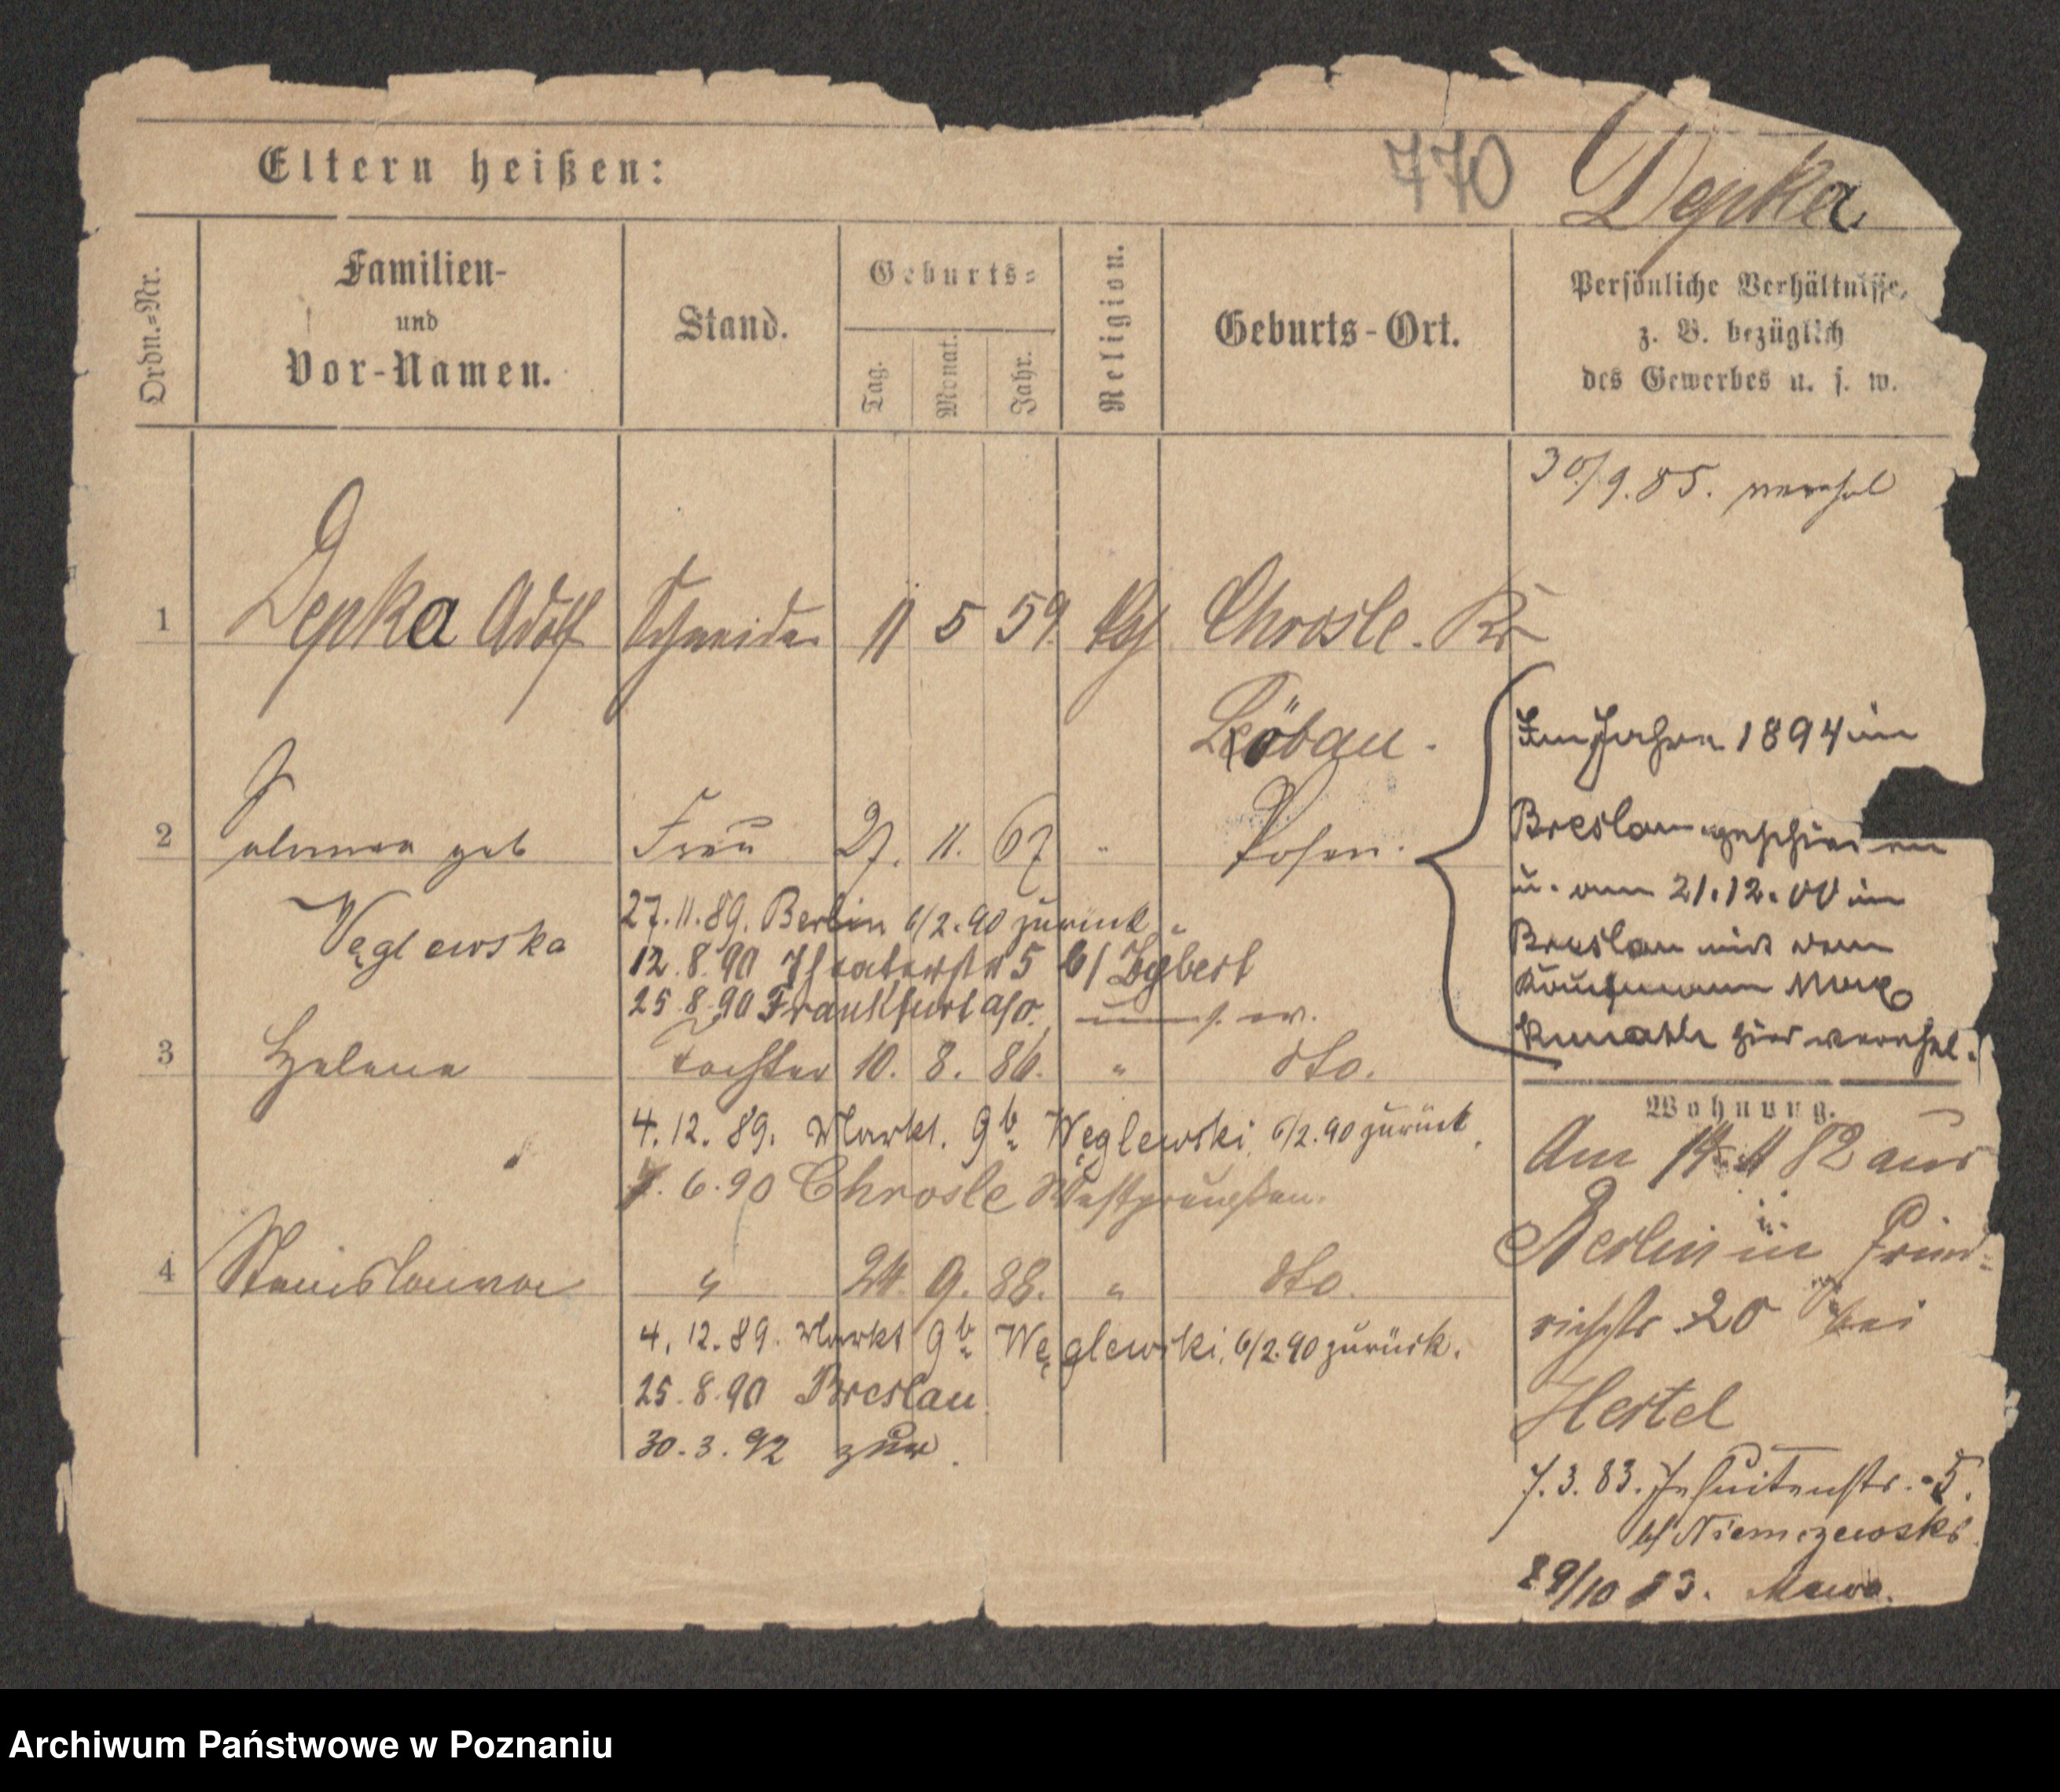 770 Depka
Eltern heißen:
Ordn.=Nr.
Familien-
und
Vor-Namen.
Stand.
Geburts=
Tag.
Monat.
Jahr.
Religion.
Geburts-Ort.
Persönliche Verhältnisse,
z. B. bezüglich
des Gewerbes u. s. w.
30/9.85. verehel
1 Depka Adolf Schneider 11 5 59. Chrosle. Kr
Löbau.
2 geb Frau 27. 11. 67 " Posen.
Węglewska
27.11.89. Berlin 6/2.90 zurück.
12.8.90 Theaterstr 5 b/
25.8.90 Frankfurt a/O. u. s. w.
3 Helena Tochter 10. 8. 86. " dto.
4.12.89. Markt. 9b Węglewski, 6/2.90 zurück.
6.90 Chrosle Westpreußen.
4 Stanislawa " 24. 9. 88. " dto.
4.12.89. Markt 9b Węglewski, 6/2.90 zurück.
25.8.90 Breslau
30.3.92 zur.
Im Jahre 1894 in
Breslau geschieden
u. am 21.12.00 in
Breslau mit dem
Kaufmann Max
hier verehel.
Wohnung.
Am 14 11 82 aus
Berlin in Fried=
richstr. 20 bei
Hertel
7.3.83. Jesuitenstr. 5.
b/ Niemczewski.
29/10 83.
Archiwum Państwowe w Poznaniu